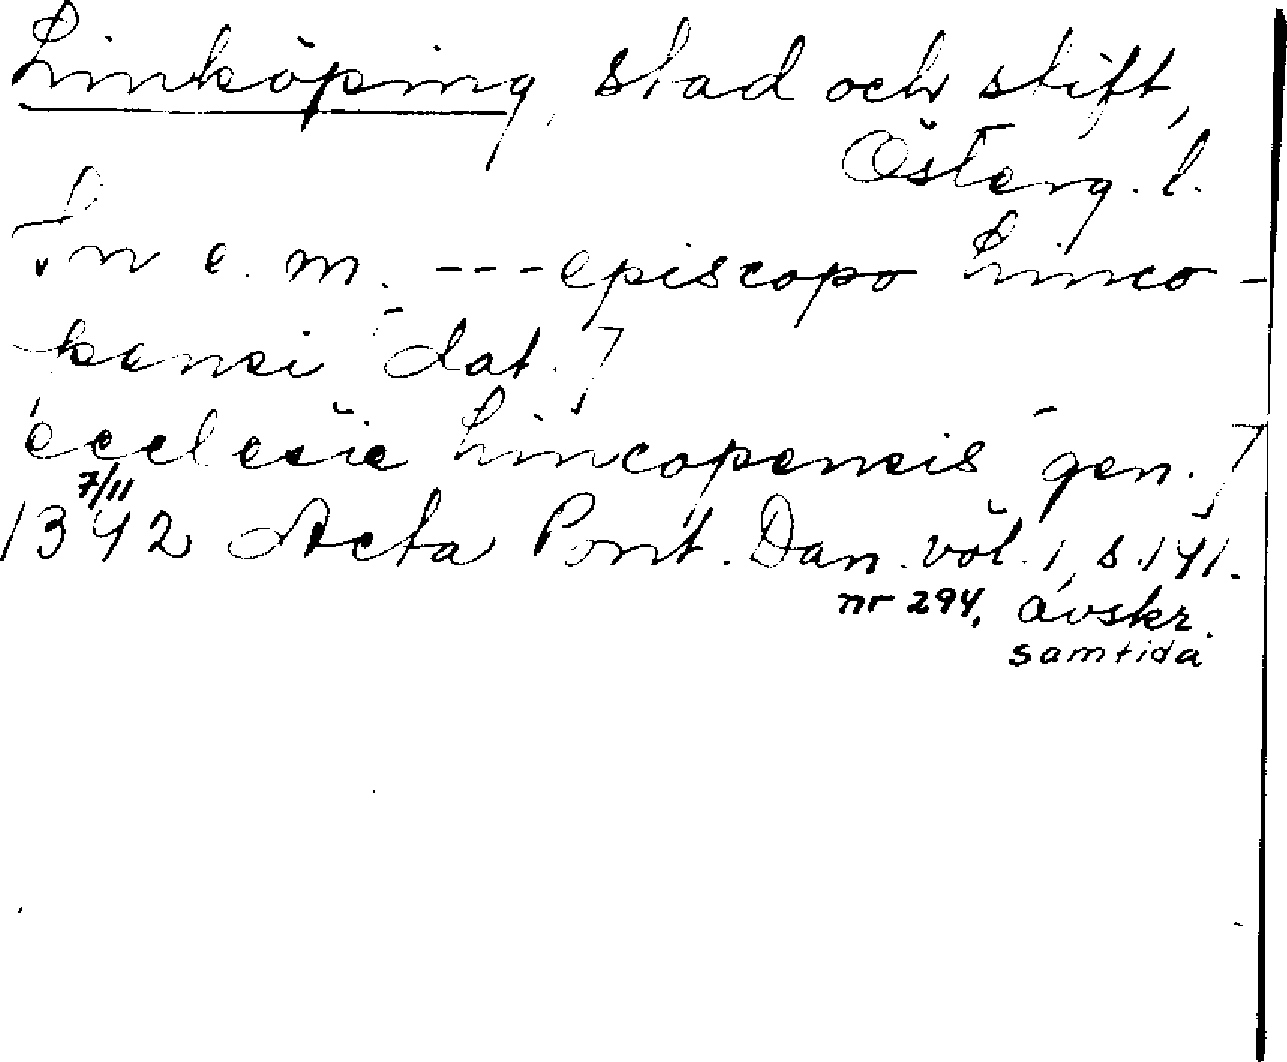 Linköping, stad och stift,
Österg. l.
In e. m. --- episcopo Linco-
pensi dat.]
ecclesie Lincopensis gen.]
7/11
1342 Acta Pont. Dan. vol. 1, s. 141.
nr 294, avskr.
samtida